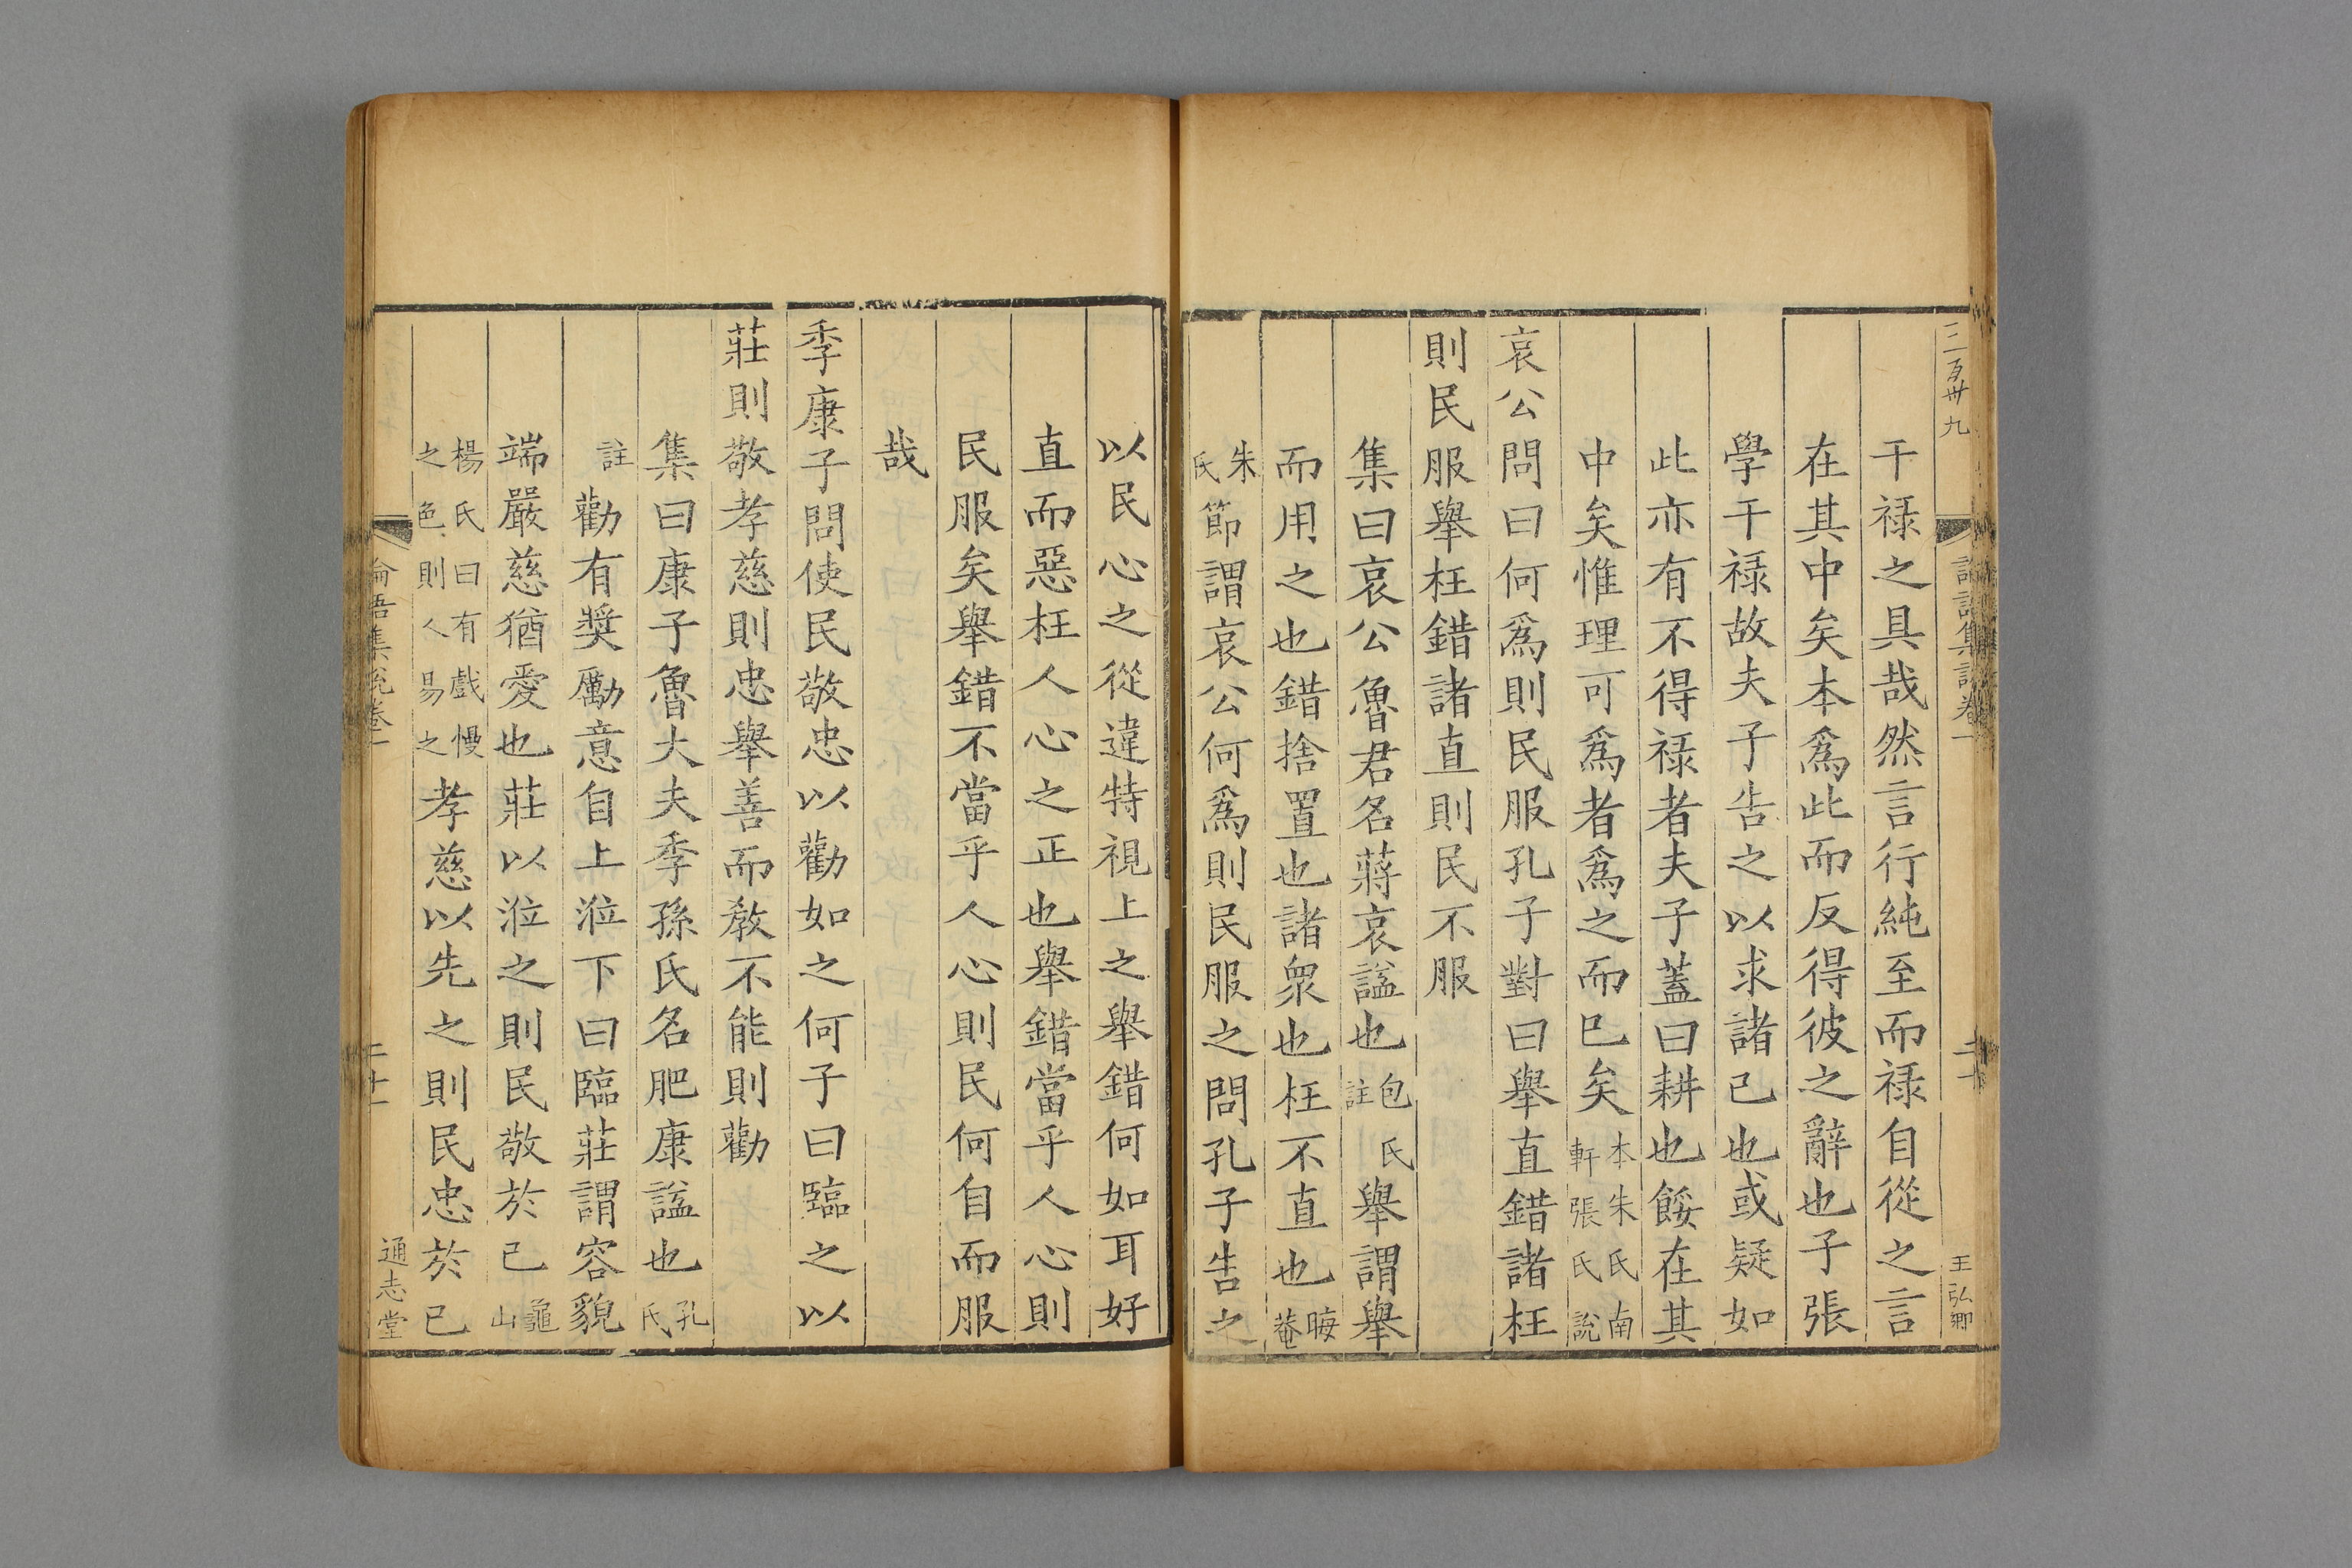 三百卅九
卷一
王弘卿
干祿之具哉然言行純至而祿自從之言
在其中矣本爲此而反得彼之辭也子張
學干祿故夫子告之以求諸己也或疑如
此亦有不得祿者夫子蓋曰耕也餒在其
中矣惟理可爲者爲之而巳矣本朱氏南軒張氏說
哀公問曰何爲則民服孔子對曰舉直錯諸枉
則民服舉枉錯諸直則民不服
集曰哀公魯君名蔣哀諡也包氏註舉謂舉
而用之也錯捨置也諸衆也枉不直也晦菴
朱氏節謂哀公何爲則民服之問孔子告之
以民心之從違特視上之舉錯何如耳好
直而惡枉人心之正也舉錯當乎人心則
民服矣舉錯不當乎人心則民何自而服
哉
季康子問使民敬忠以勸如之何子曰臨之以
莊則敬孝慈則忠舉善而敎不能則勸
集曰康子魯大夫季孫氏名肥康諡也孔氏
註勸有奬勵意自上涖下曰臨莊謂容貌
端嚴慈猶愛也莊以涖之則民敬於己龜山
楊氏曰有戲慢之色則人易之孝慈以先之則民忠於已
論語集說卷一
二十一
通志堂